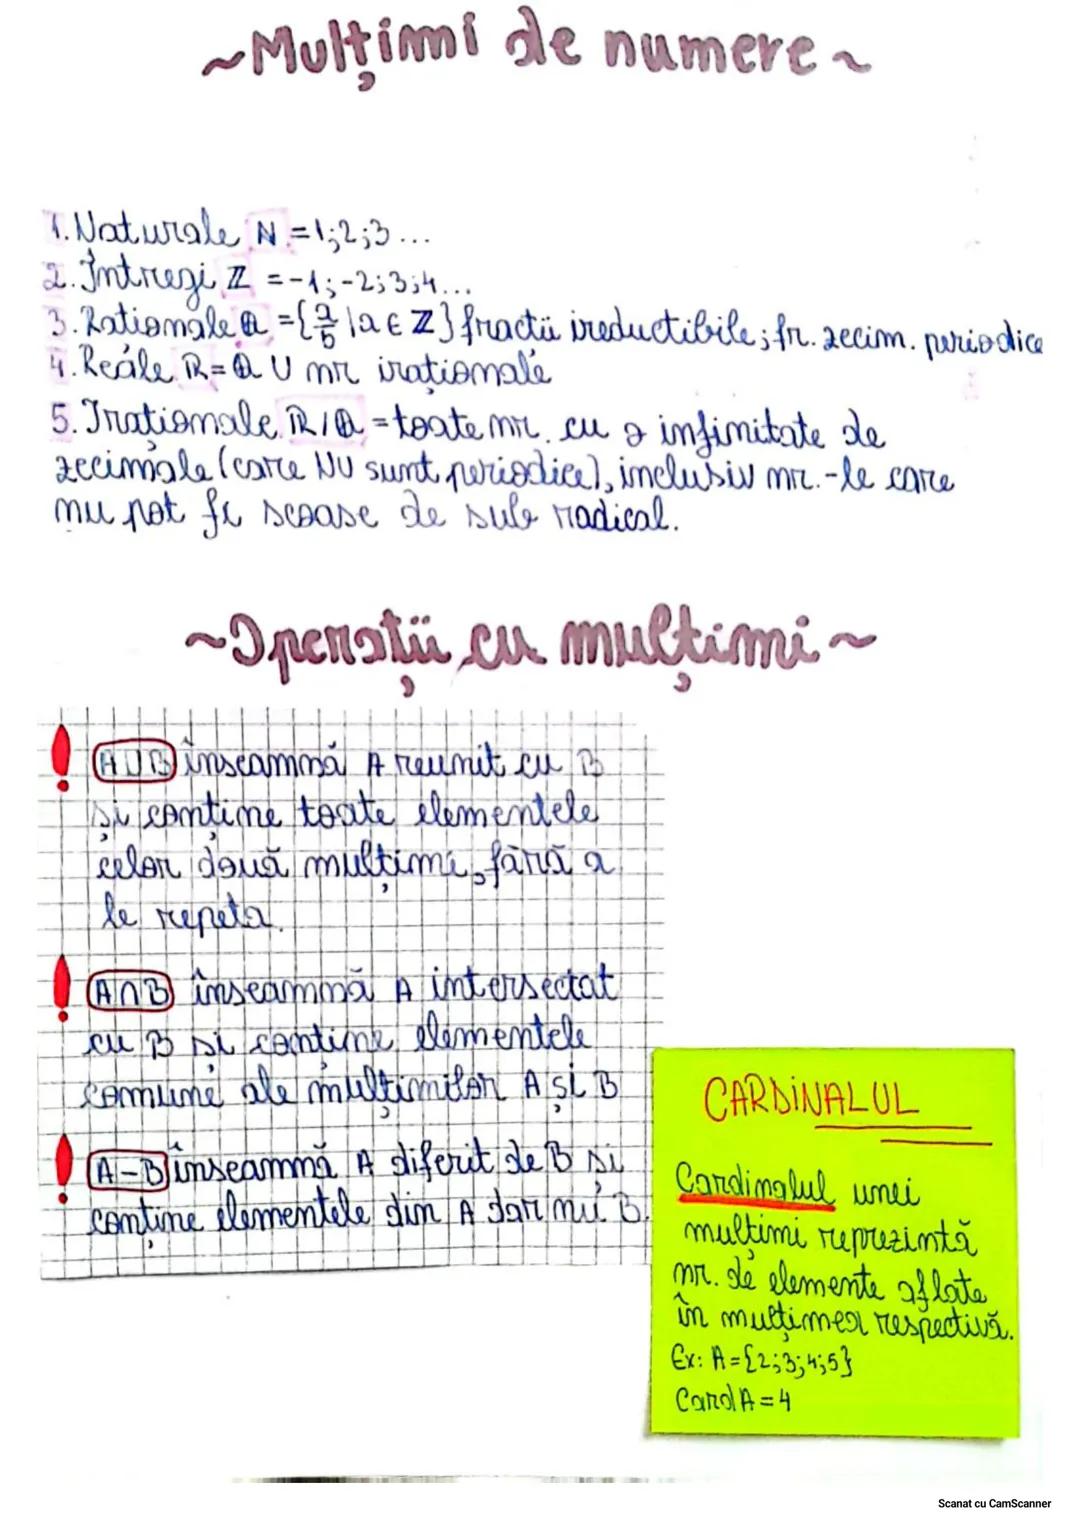 ~Mulțimi de numere~
1. Naturale ℕ = 1;2;3...
2. Întregi ℤ = -1;-2;3;4...
3. Rationale ℚ = {a/b | a ∈ ℤ} fractii ireductibile; fr. zecim. periodice
4. Reale ℝ = ℚ ∪ nr iraționale
5. Iraționale ℝ/ℚ = toate nr. cu o infinitate de
zecimale (care NU sunt periodice), inclusiv nr.-le care
nu pot fi scoase de sub radical.
~Operații cu mulțimi~
! A∪B înseamnă A reunit cu B
și conține toate elementele
celor două mulțimi, fără a
le repeta.
! A∩B înseamnă A intersectat
cu B si contine elementele
comune ale mulțimilor A și B
! A-B înseamnă A diferit de B si
conține elementele din A dar nu B.
CARDINALUL
Cardinalul unei
mulțimi reprezintă
nr. de elemente aflate
în mulțimea respectivă.
Ex: A={2;3;4;5}
Card A = 4
Scanat cu CamScanner